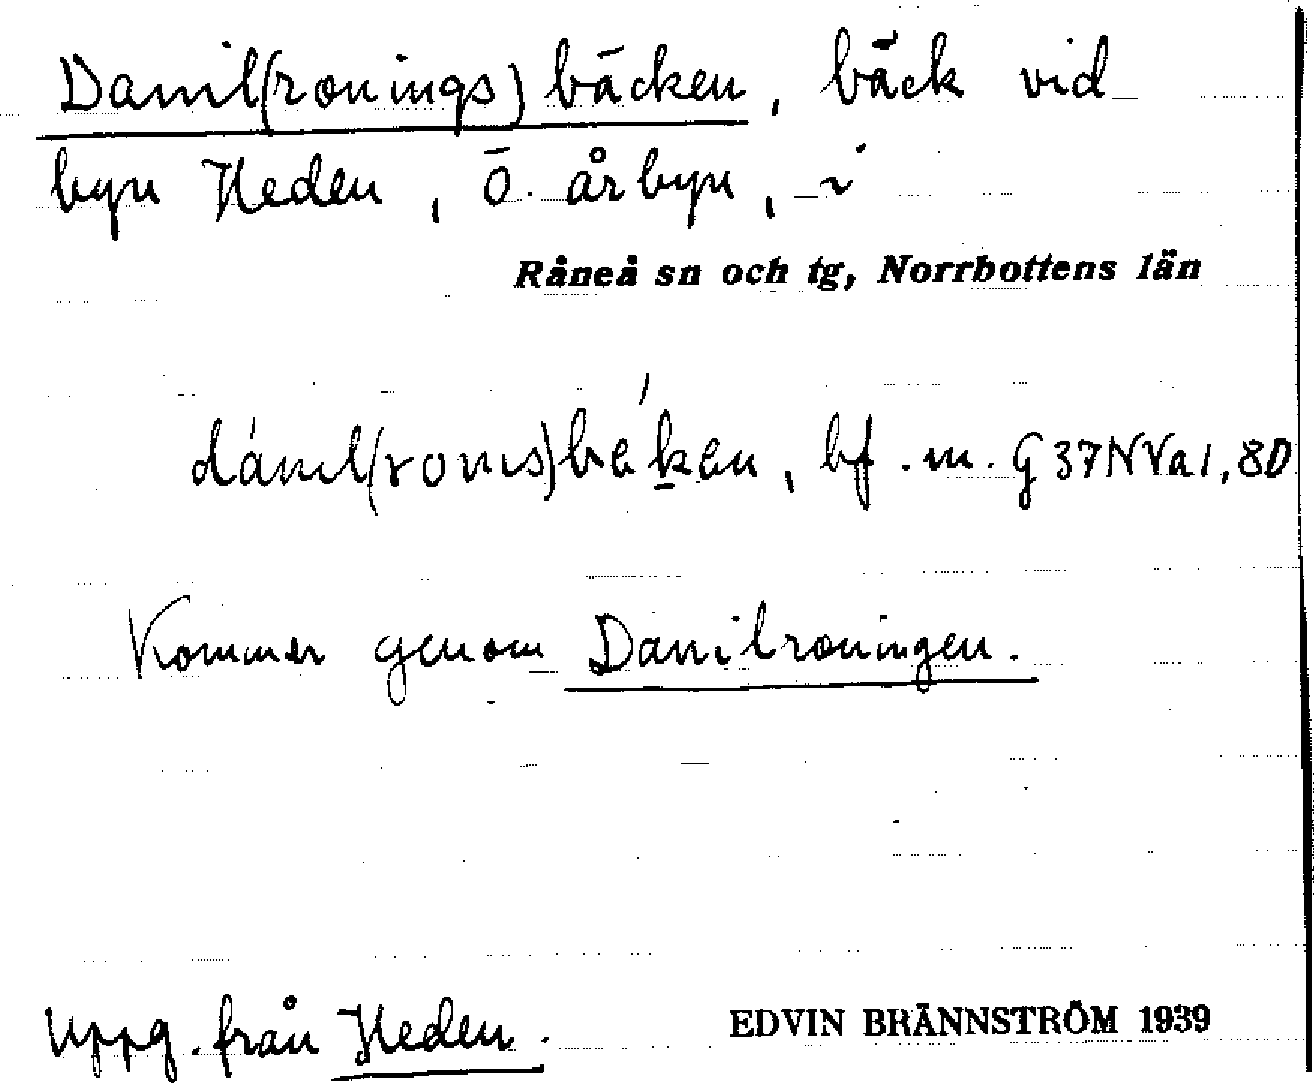 Danil(ronings)bäcken, bäck vid
byn Heden, Ö. årbyn, i
Råneå sn och tg, Norrbottens län
dánɩl(ronɩs)beken, bf. m. G 37 NVa1, 8D
Kommer genom Danilroningen.
Uppg. från Heden.
EDVIN BRÄNNSTRÖM 1939